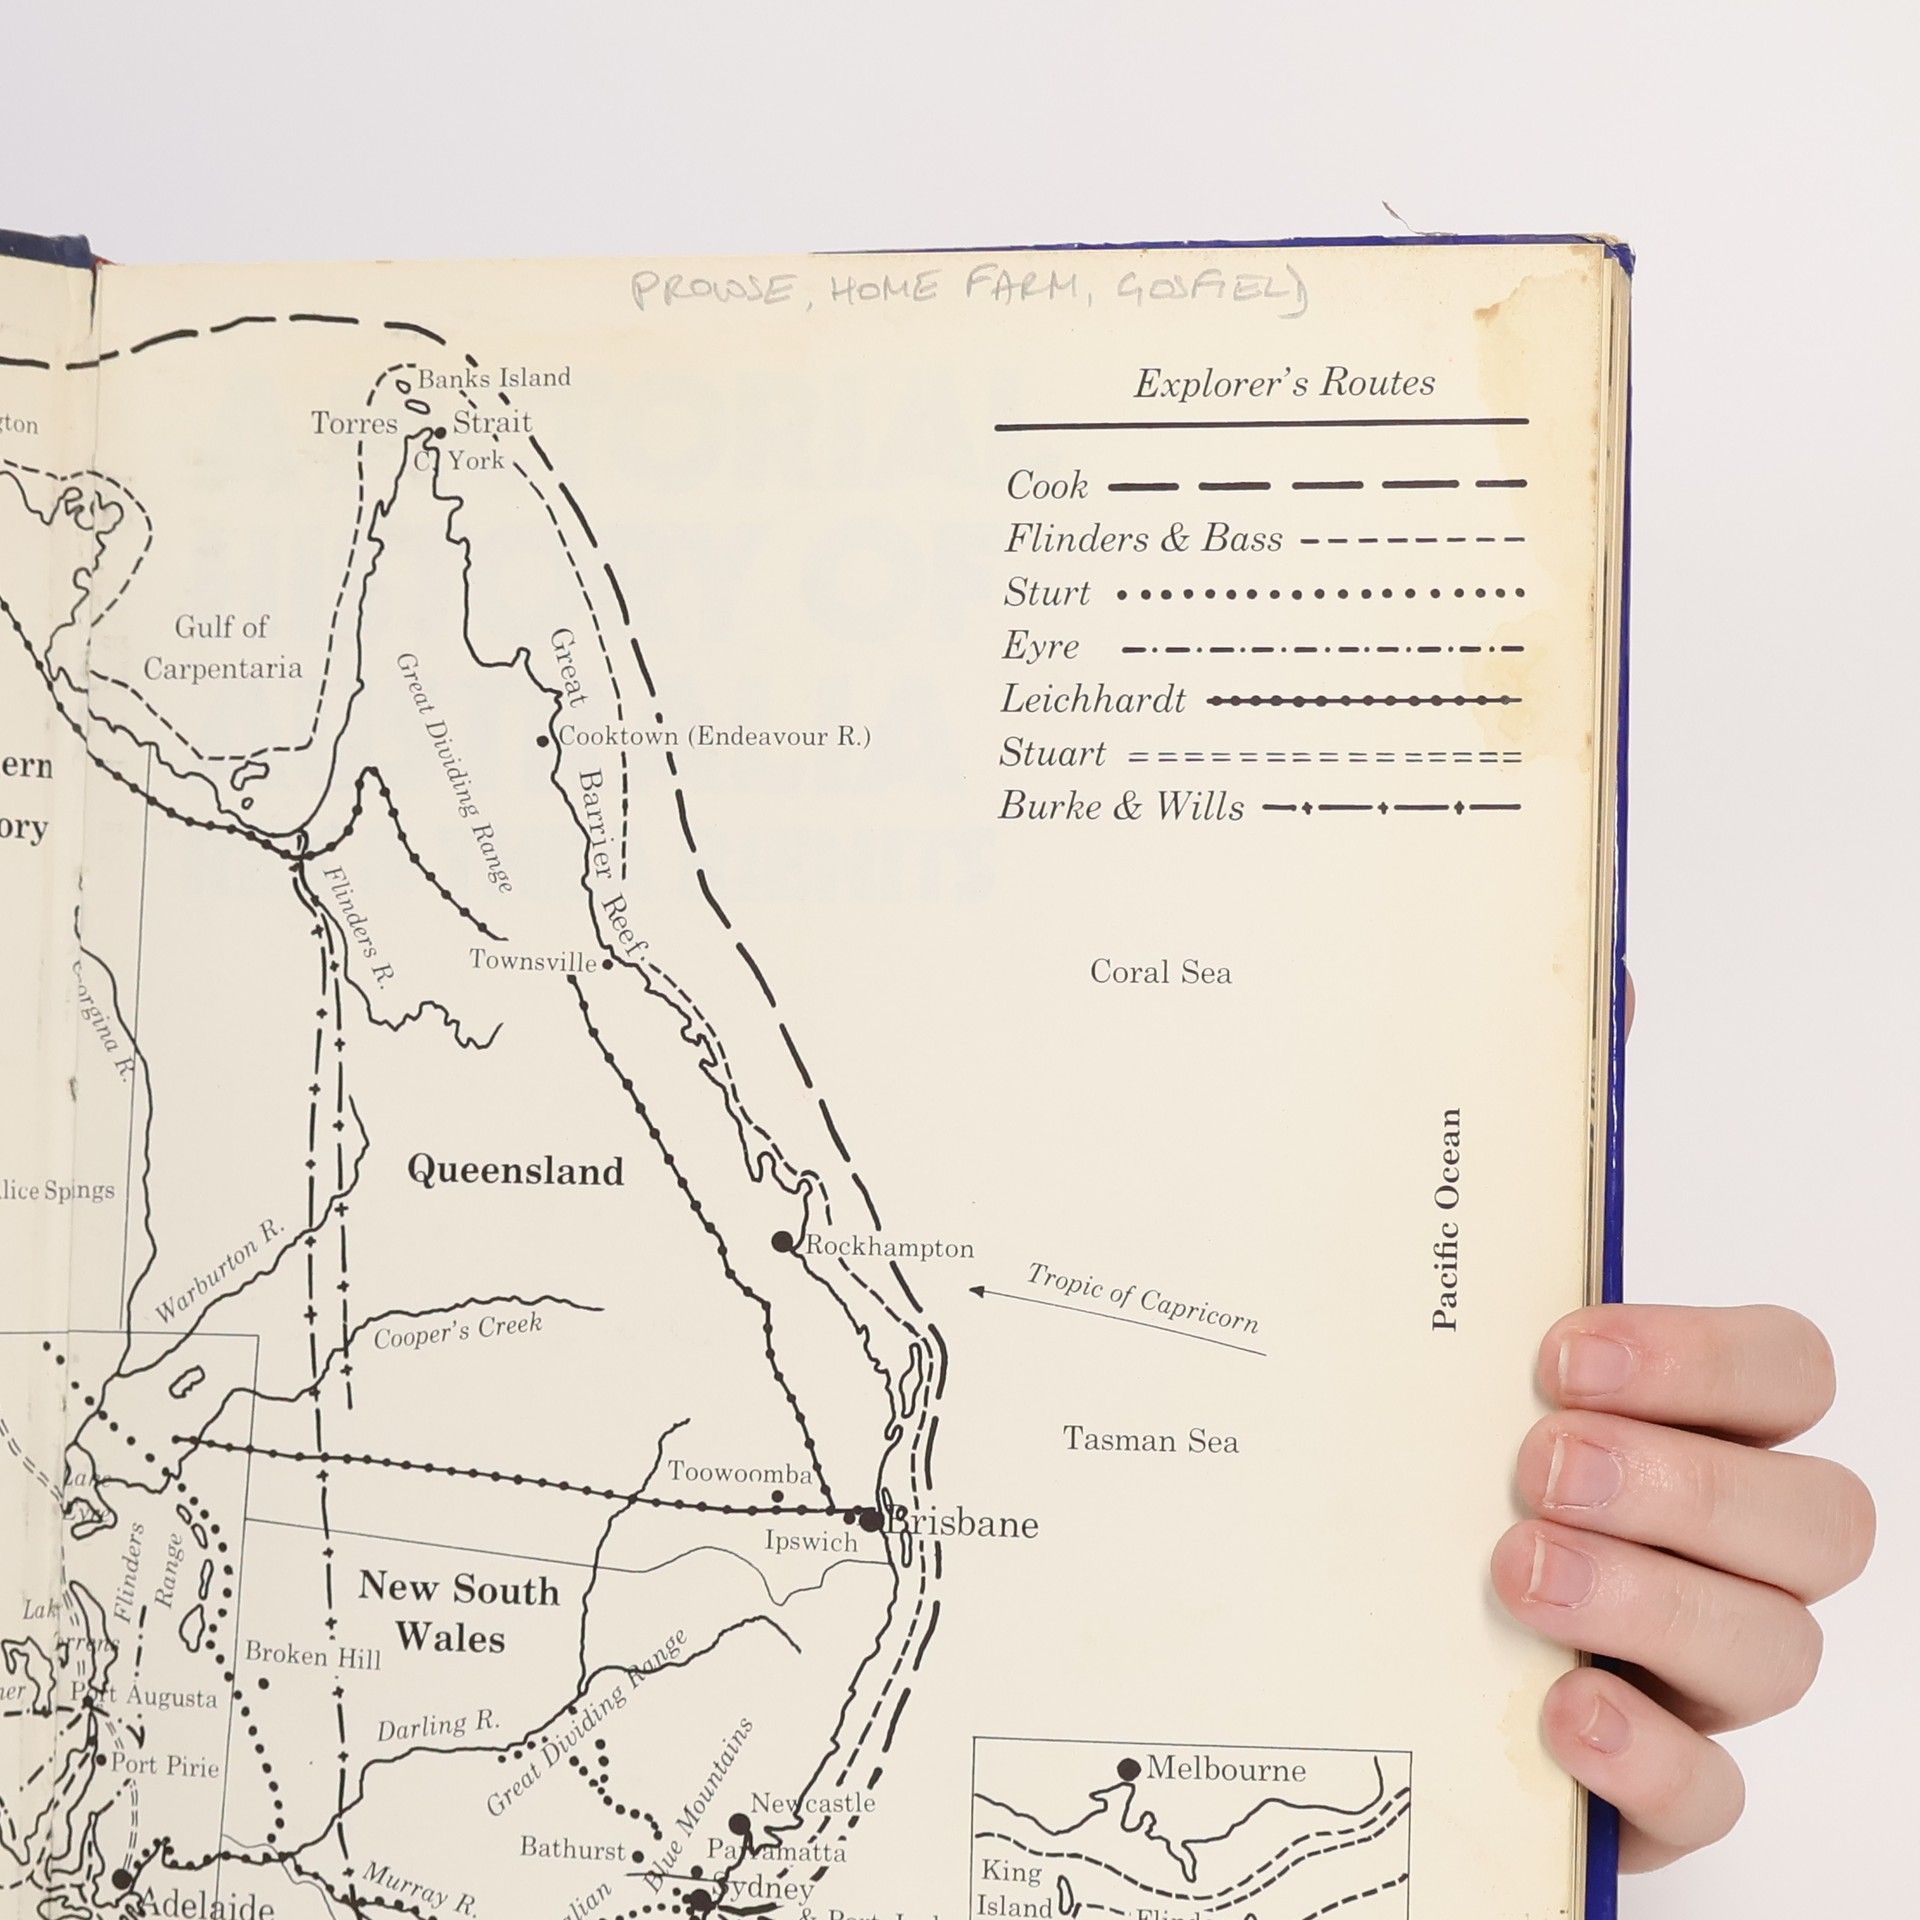 PROWSE, HOME FARM, GOSFIELD
Explorer's Routes
Cook
Flinders & Bass
Sturt
Eyre
Leichhardt
Stuart
Burke & Wills
Banks Island
Torres Strait
C. York
Gulf of
Carpentaria
Great Dividing Range
Great Barrier Reef
Cooktown (Endeavour R.)
Flinders R.
Townsville
Coral Sea
Queensland
Warburton R.
Cooper's Creek
Rockhampton
Tropic of Capricorn
Pacific Ocean
Tasman Sea
Toowoomba
Brisbane
Ipswich
New South
Wales
Flinders
Range
Lake
Broken Hill
Port Augusta
Port Pirie
Darling R.
Great Dividing Range
Blue Mountains
Newcastle
Bathurst
Parramatta
Sydney
Murray R.
Adelaide
Melbourne
King
Island